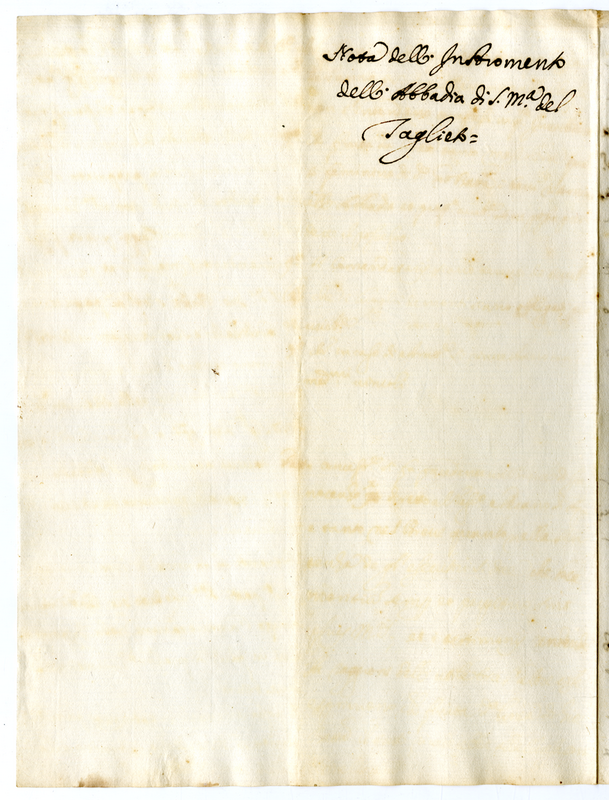 Nota dell' Instromento
dell' Abbadia di S. M.a del
Taglieto=